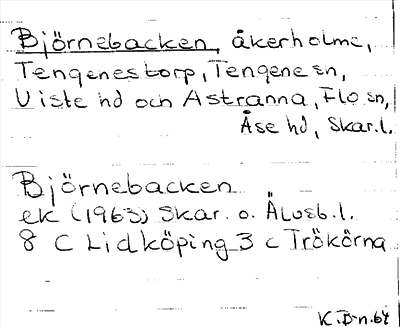 Björnebacken, åkerholme,
Tengenestorp, Tengene sn,
Viste hd och Åstranna, Flo sn,
Åse hd, Skar.l.
Björnebacken
ek (1963) Skar. o. Älvsb.l.
8 C Lidköping 3 c Trökörna
K.B-n.64